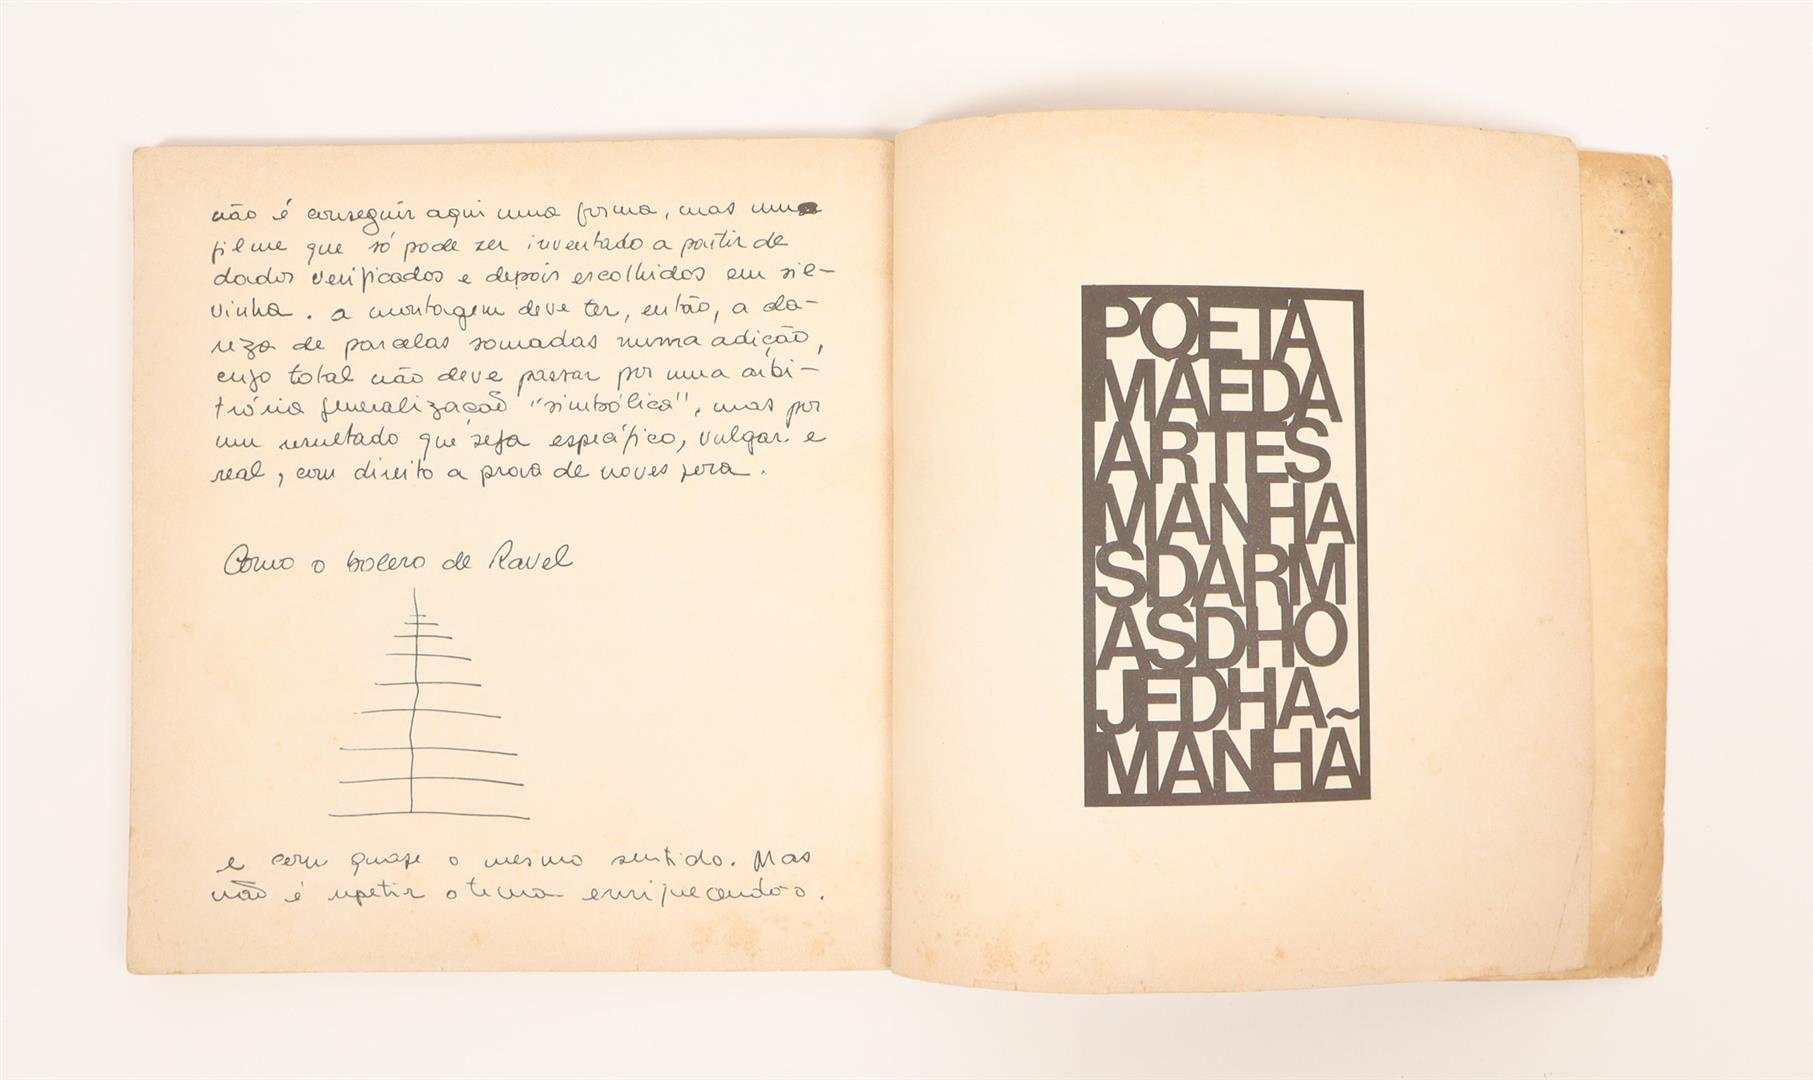 não é conseguir aqui uma forma, mas um
filme que só pode ser inventado a partir de
dados verificados e depois escolhidos em sil-
vinha. a montagem deve ter, então, a cla-
reza de parcelas somadas numa adição,
cujo total não deve passar por uma arbi-
trária generalização "simbólica", mas por
um resultado que seja específico, vulgar e
real, com direito a prova de noves fora.
Como o bolero de Ravel
e com quase o mesmo sentido. Mas
não é repetir o tema enriquecendo-o.
POETA
MÃEDA
ARTES
MANHA
SDARM
ASDHO
JEDHA
MANHÃ